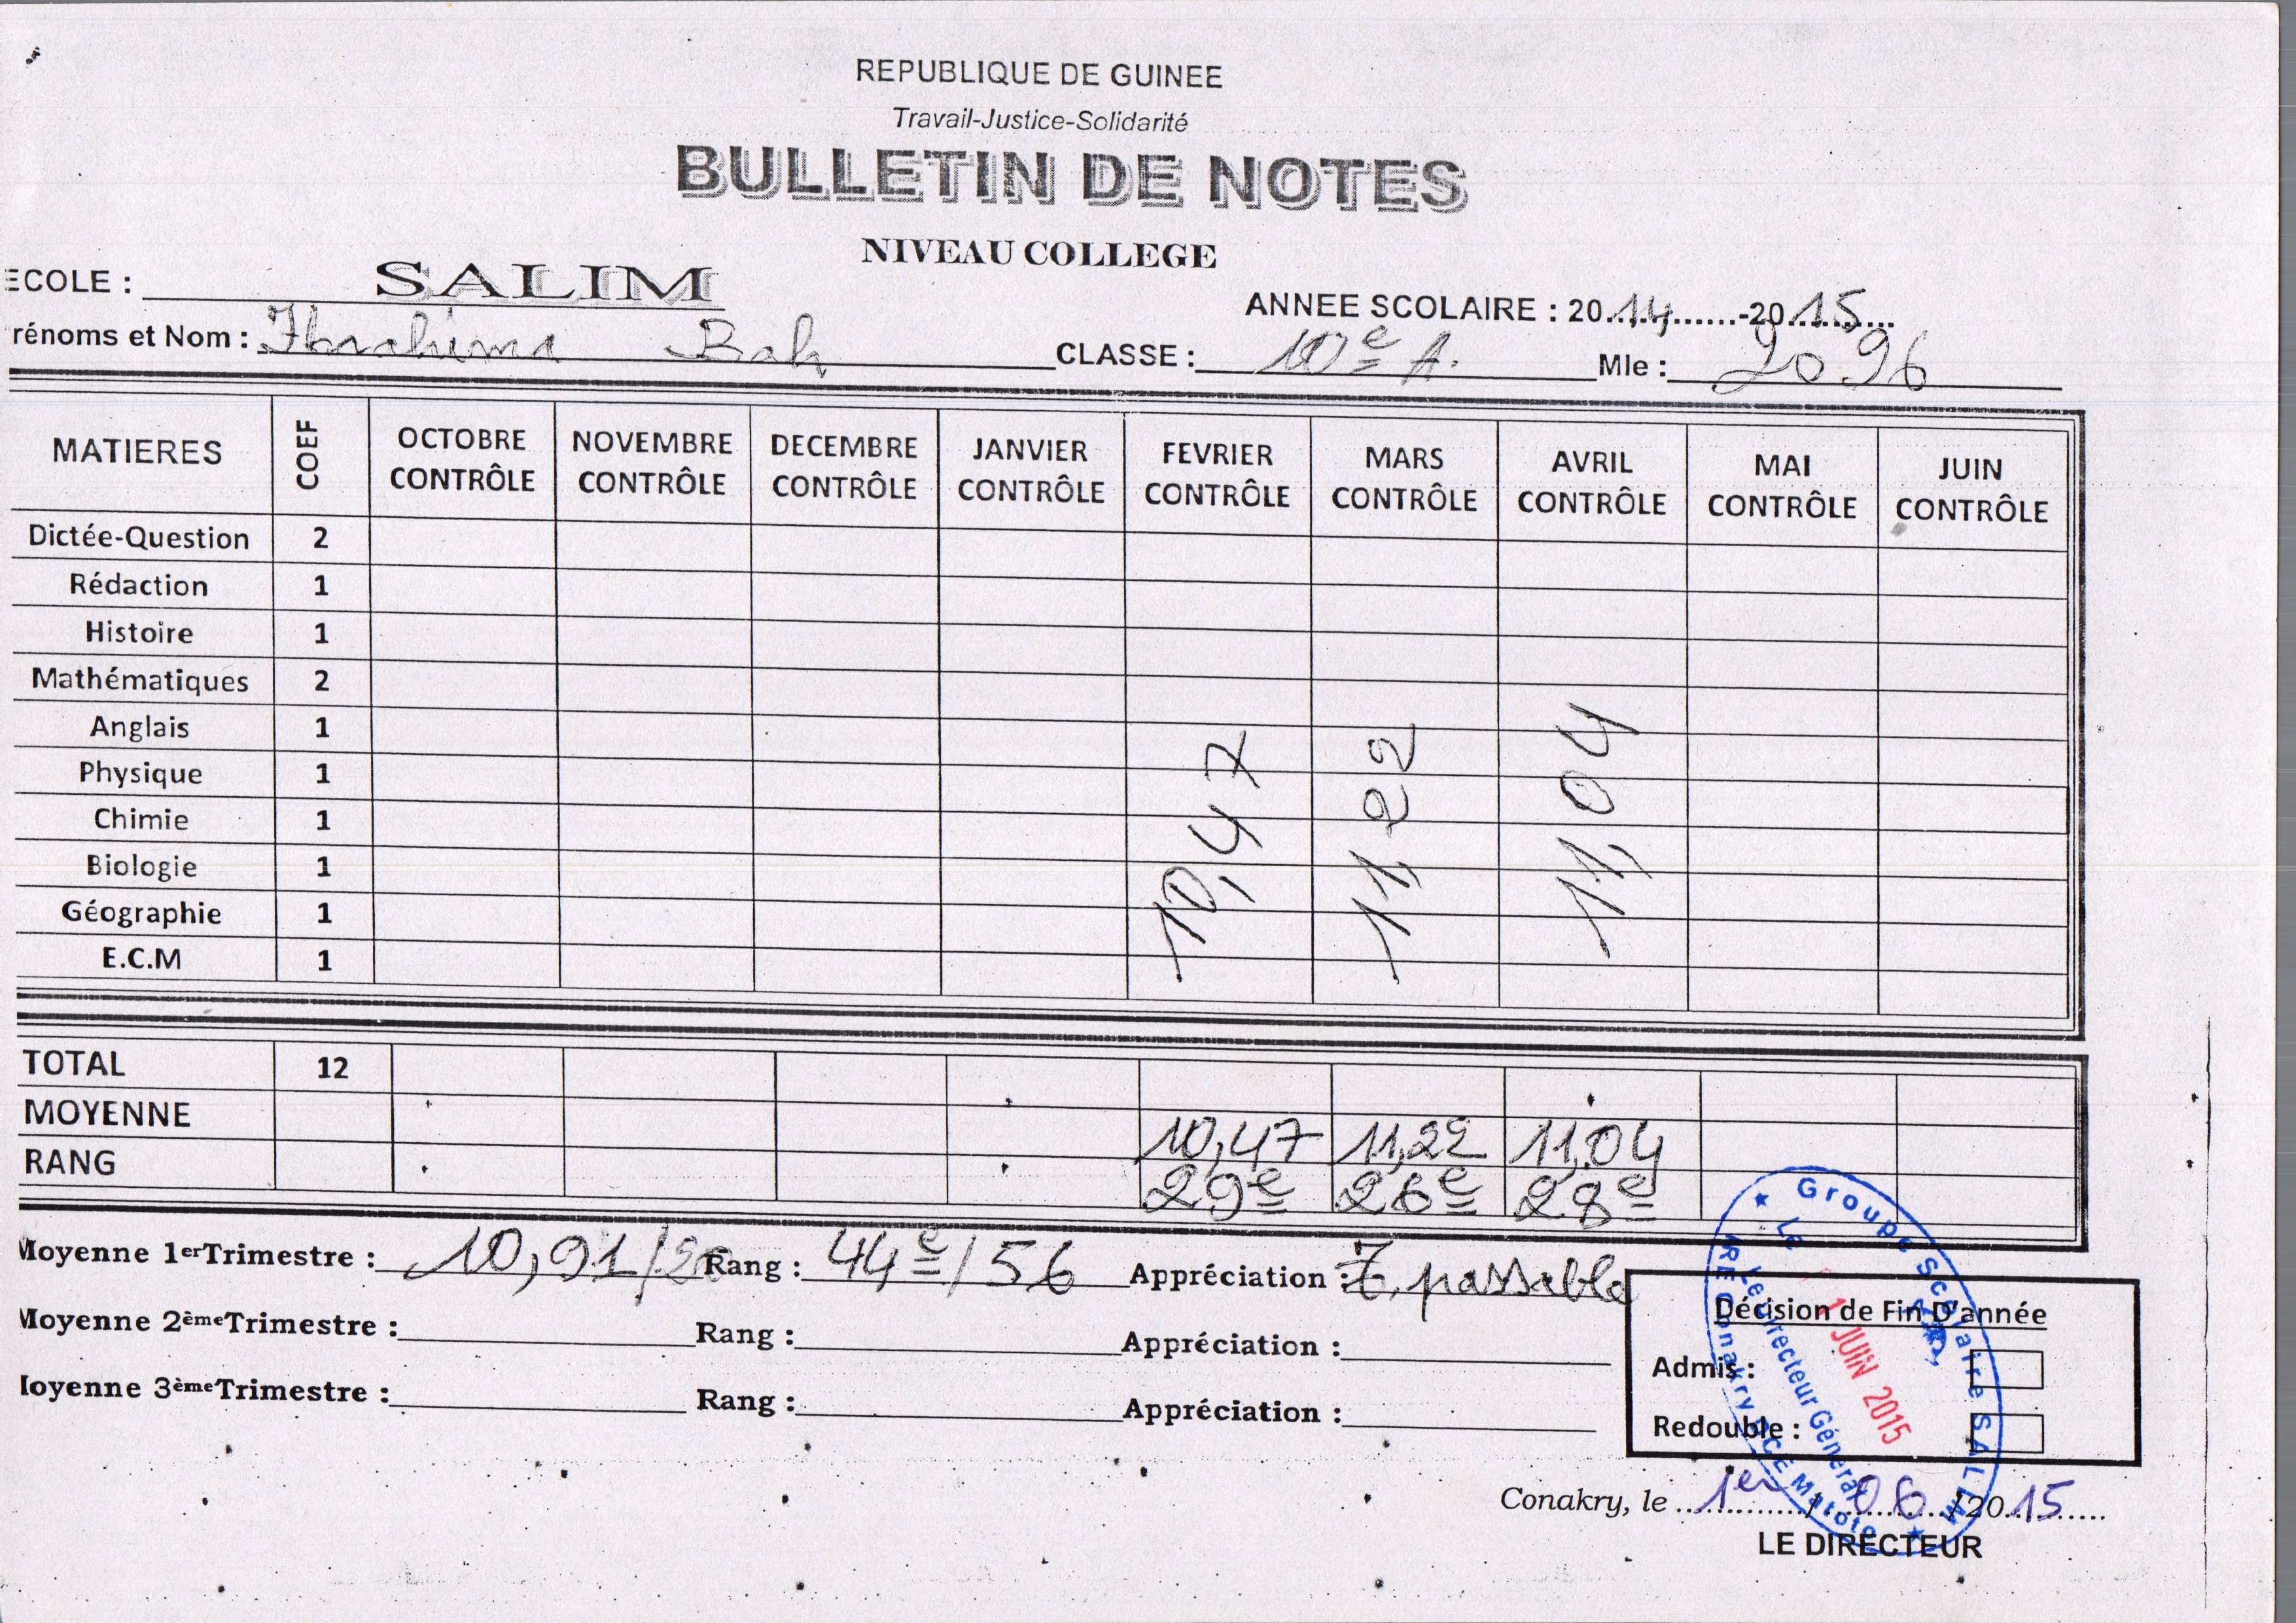 REPUBLIQUE DE GUINEE
Travail-Justice-Solidarité
BULLETIN DE NOTES
NIVEAU COLLEGE
ECOLE : SALIM
ANNEE SCOLAIRE : 2014-2015
rénoms et Nom : Ibrahima Bah CLASSE : 10e A. Mle : 2096
MATIERES COEF OCTOBRE CONTRÔLE NOVEMBRE CONTRÔLE DECEMBRE CONTRÔLE JANVIER CONTRÔLE FEVRIER CONTRÔLE MARS CONTRÔLE AVRIL CONTRÔLE MAI CONTRÔLE JUIN CONTRÔLE
Dictée-Question 2
Rédaction 1
Histoire 1
Mathématiques 2
Anglais 1
Physique 1
Chimie 1
Biologie 1
Géographie 1
E.C.M 1
10,47 11,22 11,04
TOTAL 12
MOYENNE 10,47 11,22 11,04
RANG 29e 26e 28e
Moyenne 1erTrimestre : 10,91/20 Rang : 44e/56 Appréciation : T. passable
Moyenne 2èmeTrimestre : Rang : Appréciation :
oyenne 3èmeTrimestre : Rang : Appréciation :
Décision de Fin D'année
Admis :
Redouble :
Groupe Scolaire SALIM
IRE Conakry DCE Matoto
Le Directeur Général
Le 1 JUIN 2015
Conakry, le 1er/06/2015
LE DIRECTEUR